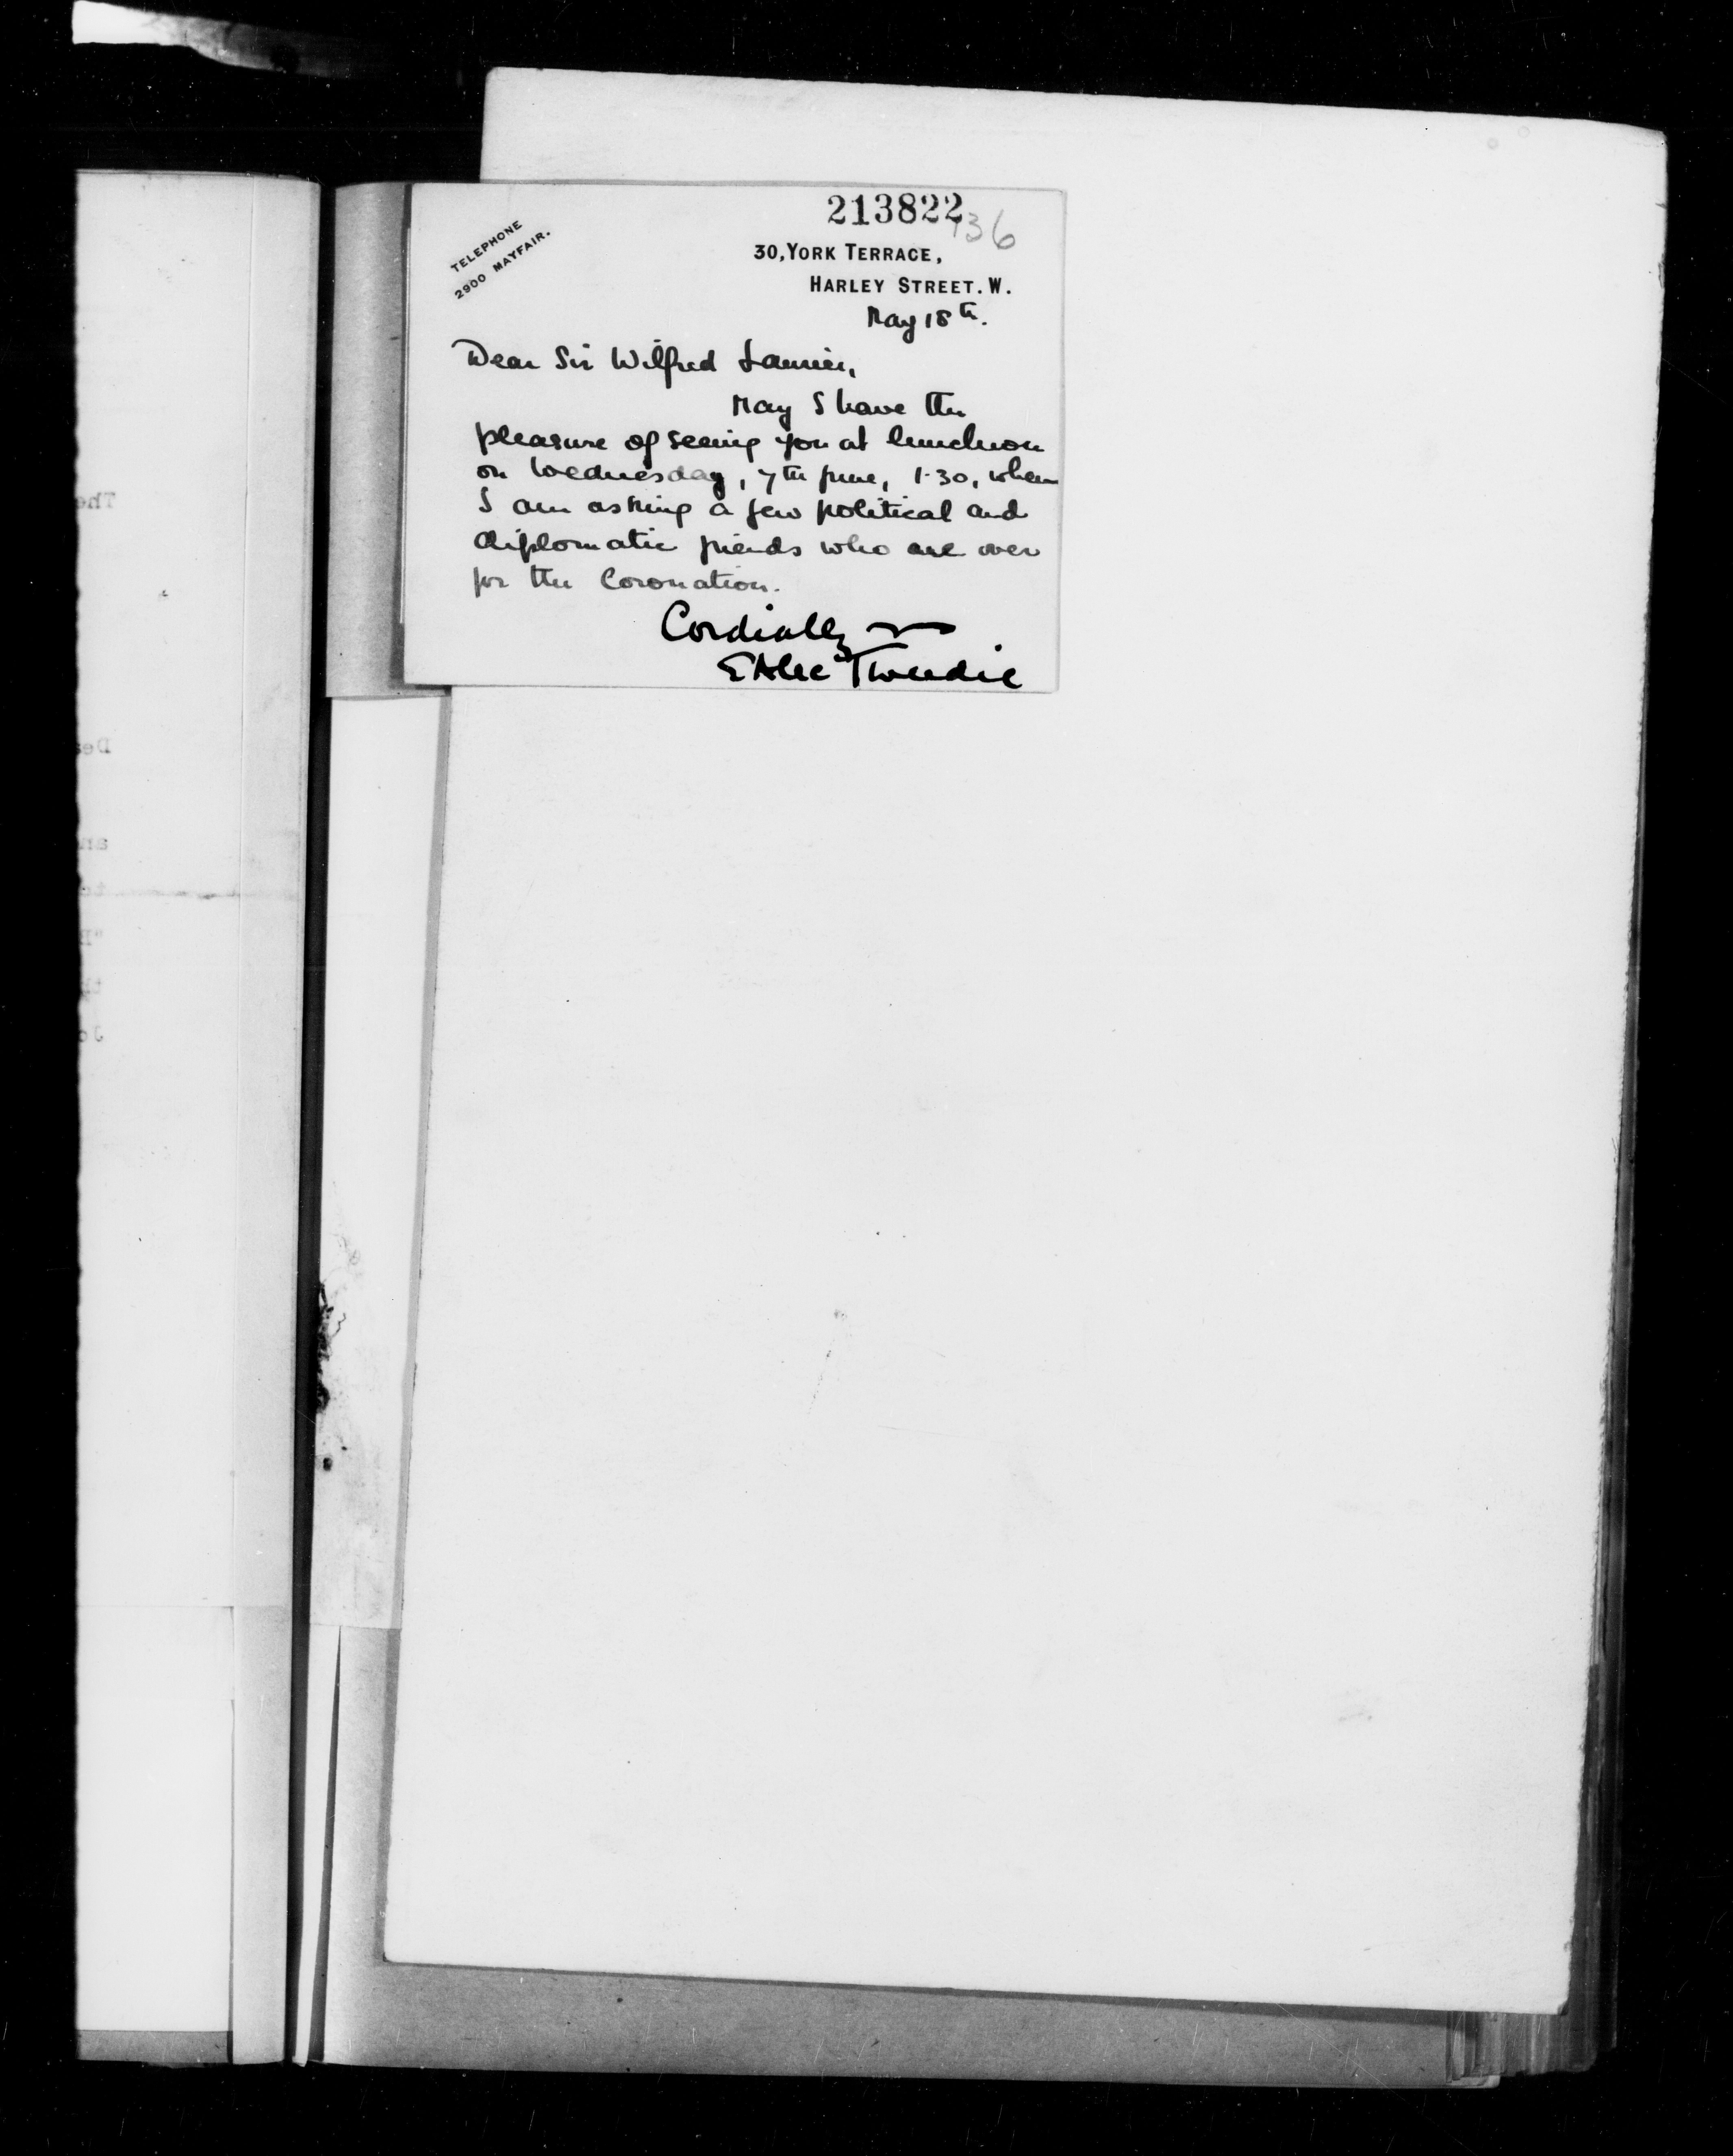 213822
136
TELEPHONE
2900 MAYFAIR.
30, YORK TERRACE,
HARLEY STREET. W.
May 18th.
Dear Sir Wilfred Laurier,
May I have the
pleasure of seeing you at luncheon
on Wednesday, 7th June, 1.30, when
I am asking a few political and
diplomatic friends who are over
for the Coronation.
Cordially
E Alec Tweedie
The
De
an
to
"P
th
Jo